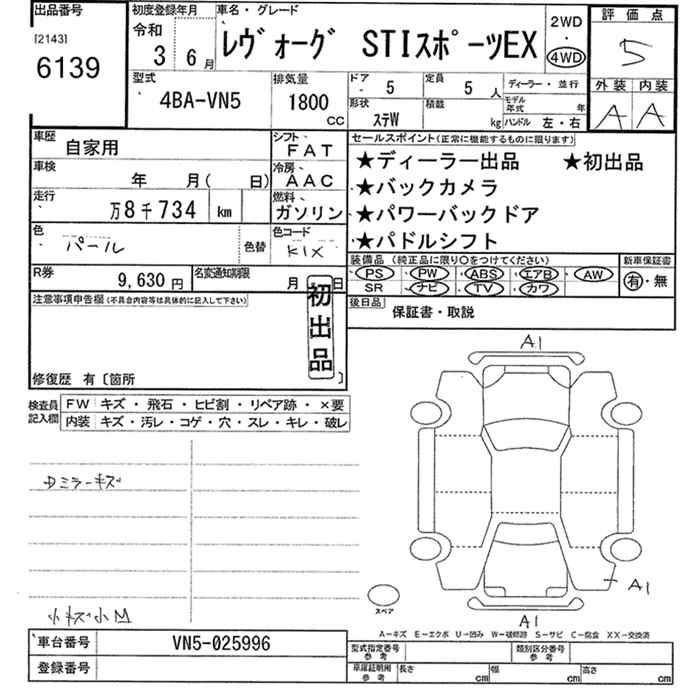 出品番号 初度登録年月 車名・グレード 評価点
[2143] 令和 レヴォーグ STIスポーツEX 2WD 5
6139 3 6月 4WD
型式 排気量 ドア 定員 ディーラー・並行 外装 内装
4BA-VN5 1800 CC 5 5人 モデル年式 年 A A
形状 ステW 積載 kg ハンドル 左・右
車歴 自家用 シフト FAT セールスポイント(正常に機能するものに限ります)
車検 年 月( 日) 冷房 AAC ★ディーラー出品 ★初出品
走行 万8千734 km 燃料 ガソリン ★バックカメラ
★パワーバックドア
色 パール 色替 色コード K1X ★パドルシフト
R券 9,630円 名変通知期限 月 日 装備品(純正品に限り〇をつけてください) 新車保証書
PS PW ABS エアB AW 有・無
SR ナビ TV カワ
注意事項申告欄(不具合内容等は具体的に記入して下さい) 初出品 後日品 保証書・取説
修復歴 有〔箇所 〕
検査員記入欄 FW キズ・飛石・ヒビ割・リペア跡・×要
内装 キズ・汚レ・コゲ・穴・スレ・キレ・破レ
A1
ミラーキズ
A1
スペア
小キズ小凹 A1
A−キズ E−エクボ U−凹み W−補修跡 S−サビ C−腐食 XX−交換済
車台番号 VN5-025996 型式指定番号 参考 類別区分番号 参考
登録番号 車庫証明用 参考 長さ cm 幅 cm 高さ cm